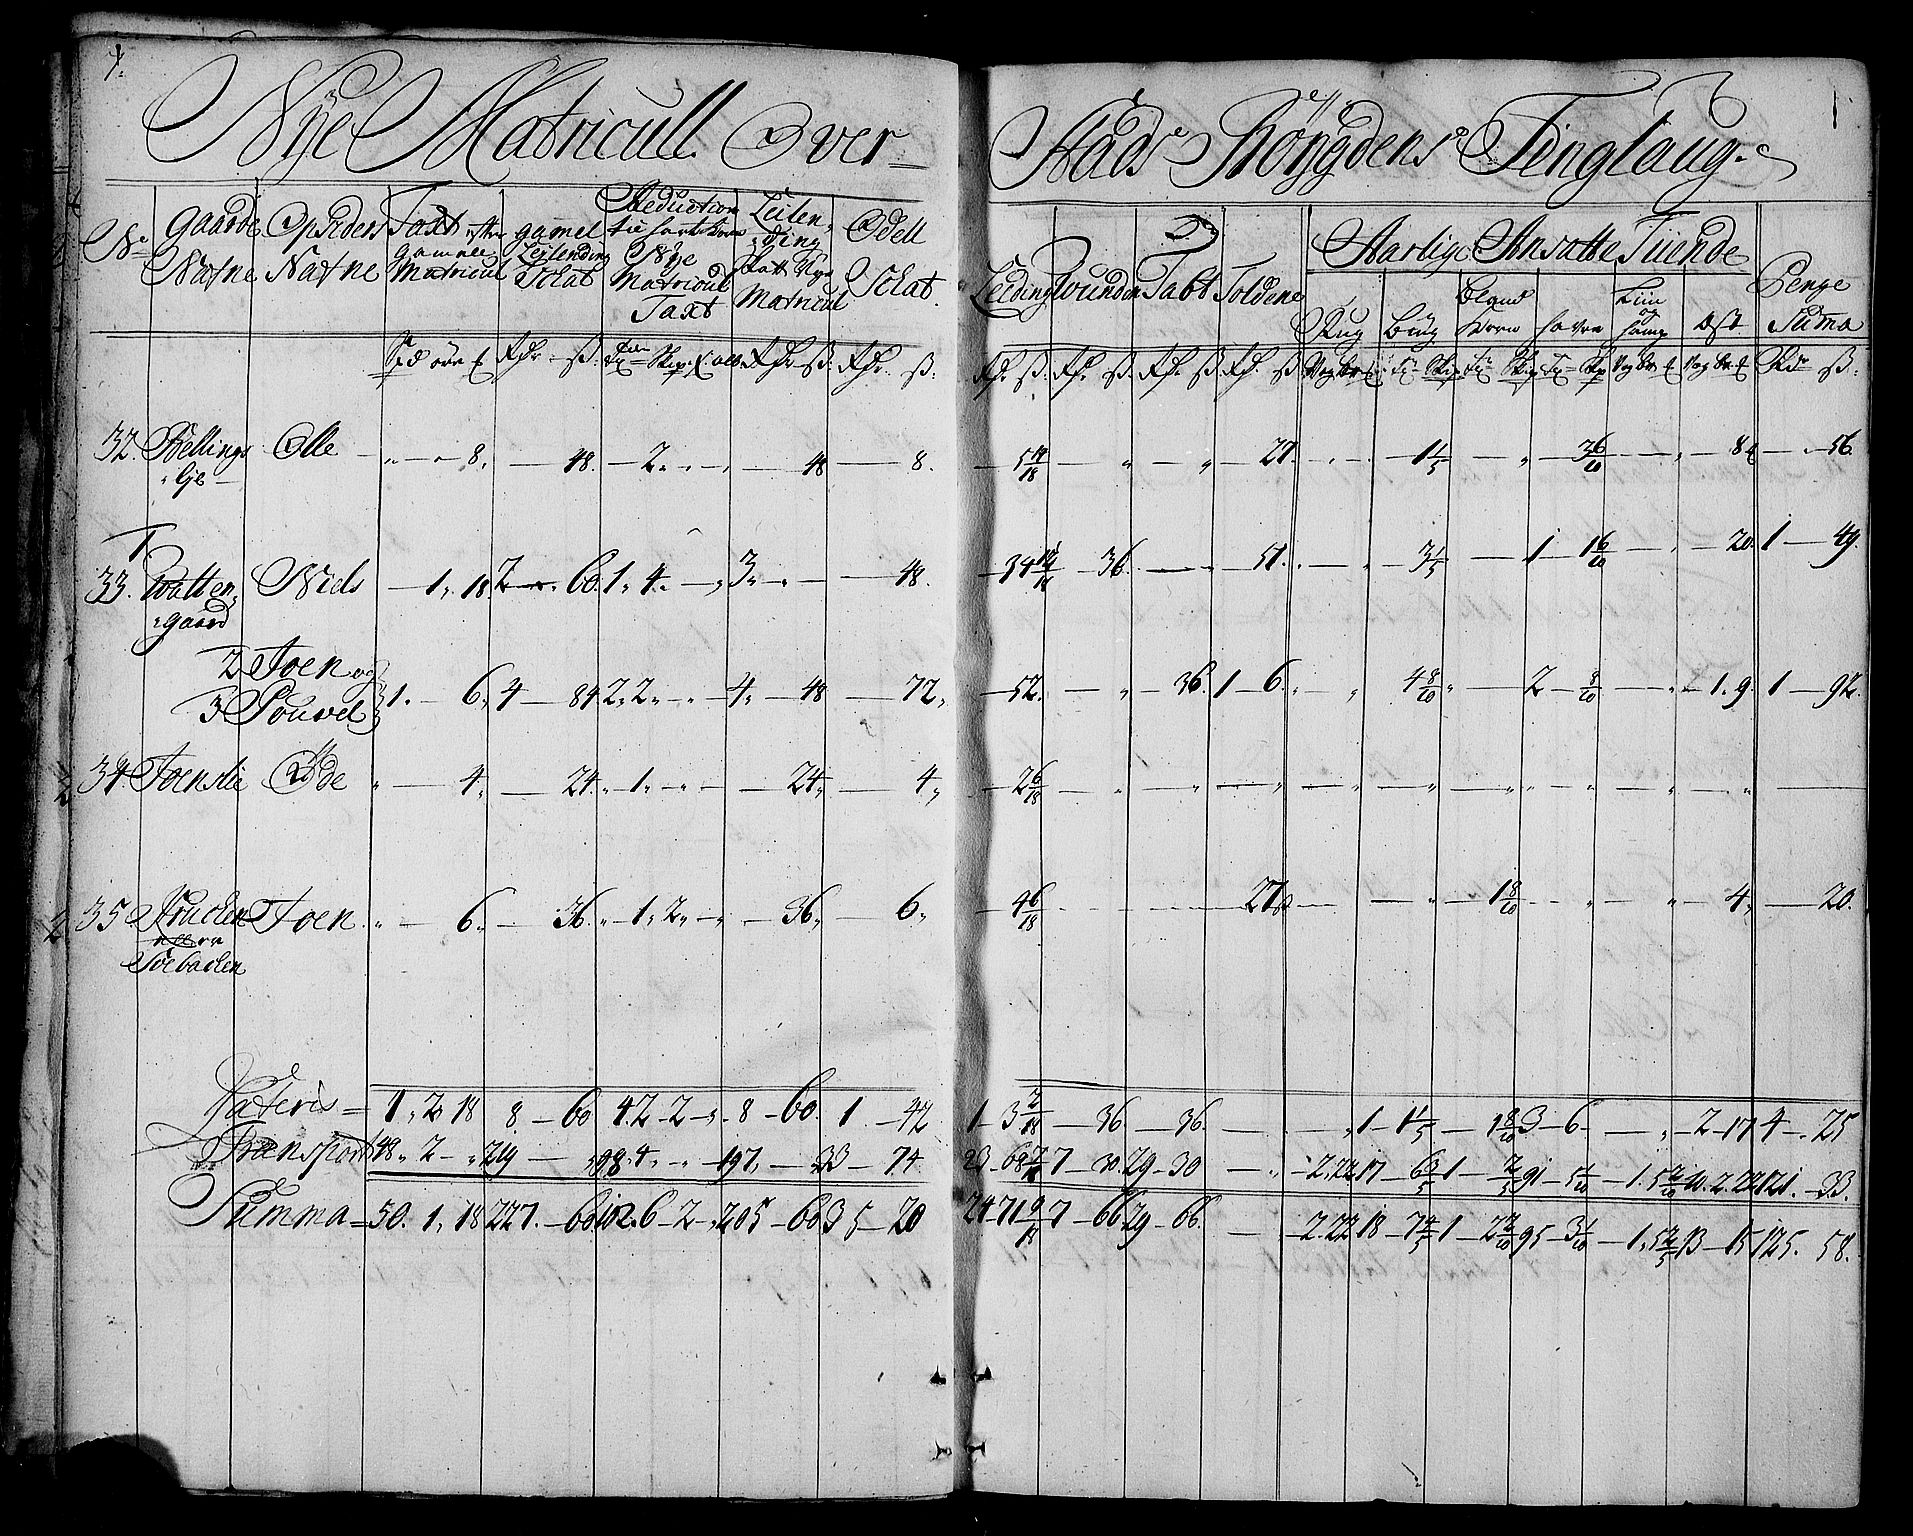 Nÿe Matricull Over
Stads Böÿgdens Tinglaug
No
Gaarde Nafne
Opsiders Nafne
Taxt efter gamle Matricul
gamel Leilending Schat
Reduction til hart Korn Nÿe Matricul Taxt
Leilending Skatt Nye Matricul
Odell Schat.
Leding
Wunden
Tabt
Foldene
Aarlige Ansatte Tiende
Rug
Bÿg
Bland Korn
hafre
Liin og hamp
Ost
Penge Suma
32. Bellings lje Olle 8. 48. 2. 48 8. 5 14/18 27. 1 1/5 3 6/10 8 56
1
33. Watten gaard Niels 1. 18. 2 60. 1. 4. 3. 48. 34 36. 51. 3 1/5 1 1 6/10 20. 1 49.
2 Joen og
3 Pouvel 1. 6. 4 84 2. 2. 4. 48 72. 52. 36. 1 6. 4 8/10 2 8/10 1. 9. 1 92.
34. Joenslie Öde 4. 24. 1. 24. 4. 2 6/18
35. Kruchen Joen 6. 36. 1. 2. 36. 6. 4 6/18 27 1 8/10 4. 20.
eller
Soebachen
Lateris 1. 2 18 8. 60 4. 2 2 8 60. 1 42 1 3 2/18 36 36. 1 1 1/5 1 8/10 3 6 2 17 4 25
Transport 48. 2 219 98. 4. 197. 33 74 23 68 7 30. 29 30 2. 22 17 6 3/5 1 2/5 91 5 1/10 1. 5 2/10 2. 22 121. 33.
Summa 50. 1. 18 227. 60 102. 6 2 205 60 35 20 24 71 9/18 7 66 29 66. 2. 22 18 7 4/5 1 2 2/10 95 3 1/10 1. 5 2/5 13 15 125. 58.